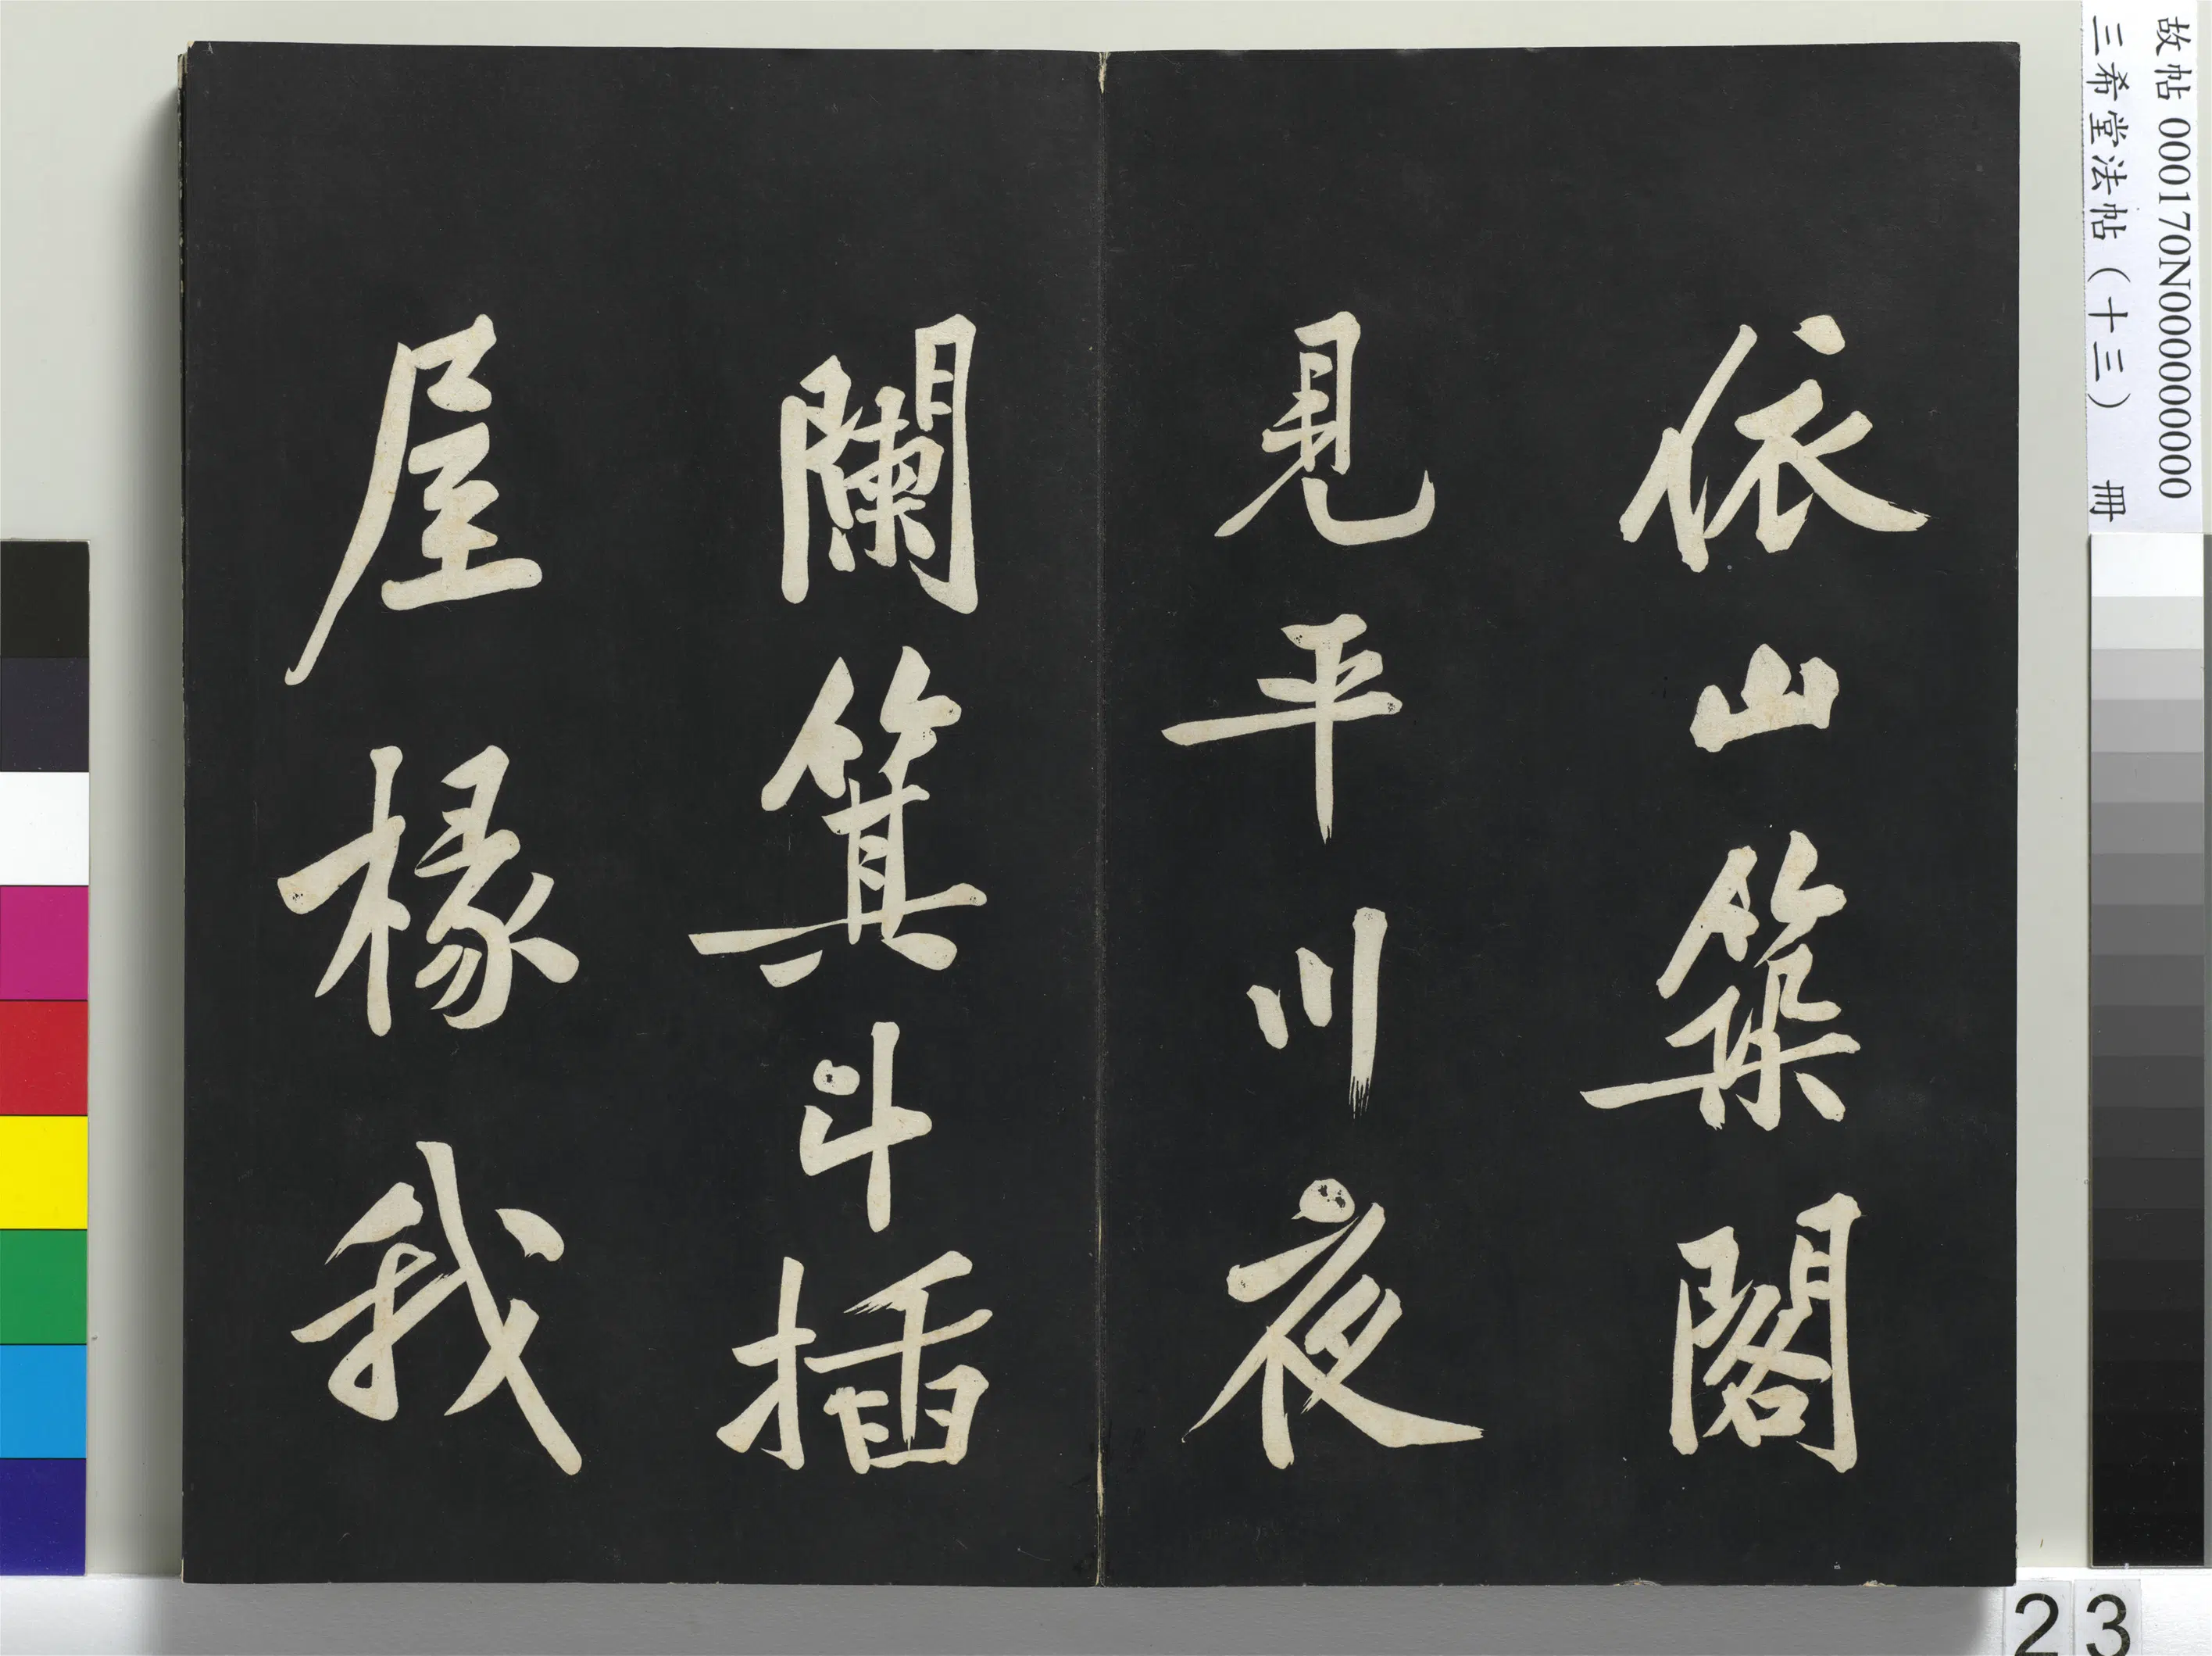 依山築閣
見平川夜
闌箕斗插
屋椽我
故帖 000170N000000000
三希堂法帖（十三） 冊
23